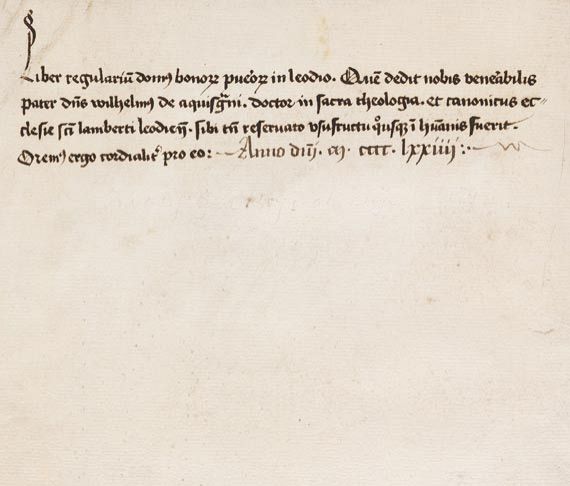 Liber regulariũ domꝰ bonoꝝ pueroꝝ in leodio. Quẽ dedit nobis venerabilis
pater dñs wilhelmꝰ de aquisgrñi. doctor in sacra theologia. et canonicus ec-
clesie sc̃i lamberti leodieñ. sibi tñ reseruato vsufructu qͦusqꝫ ĩ hũanis fuerit.
Oremꝰ ergo cordialit̾ pro eo: Anno dñi. m. cccc. lxxiiii:.